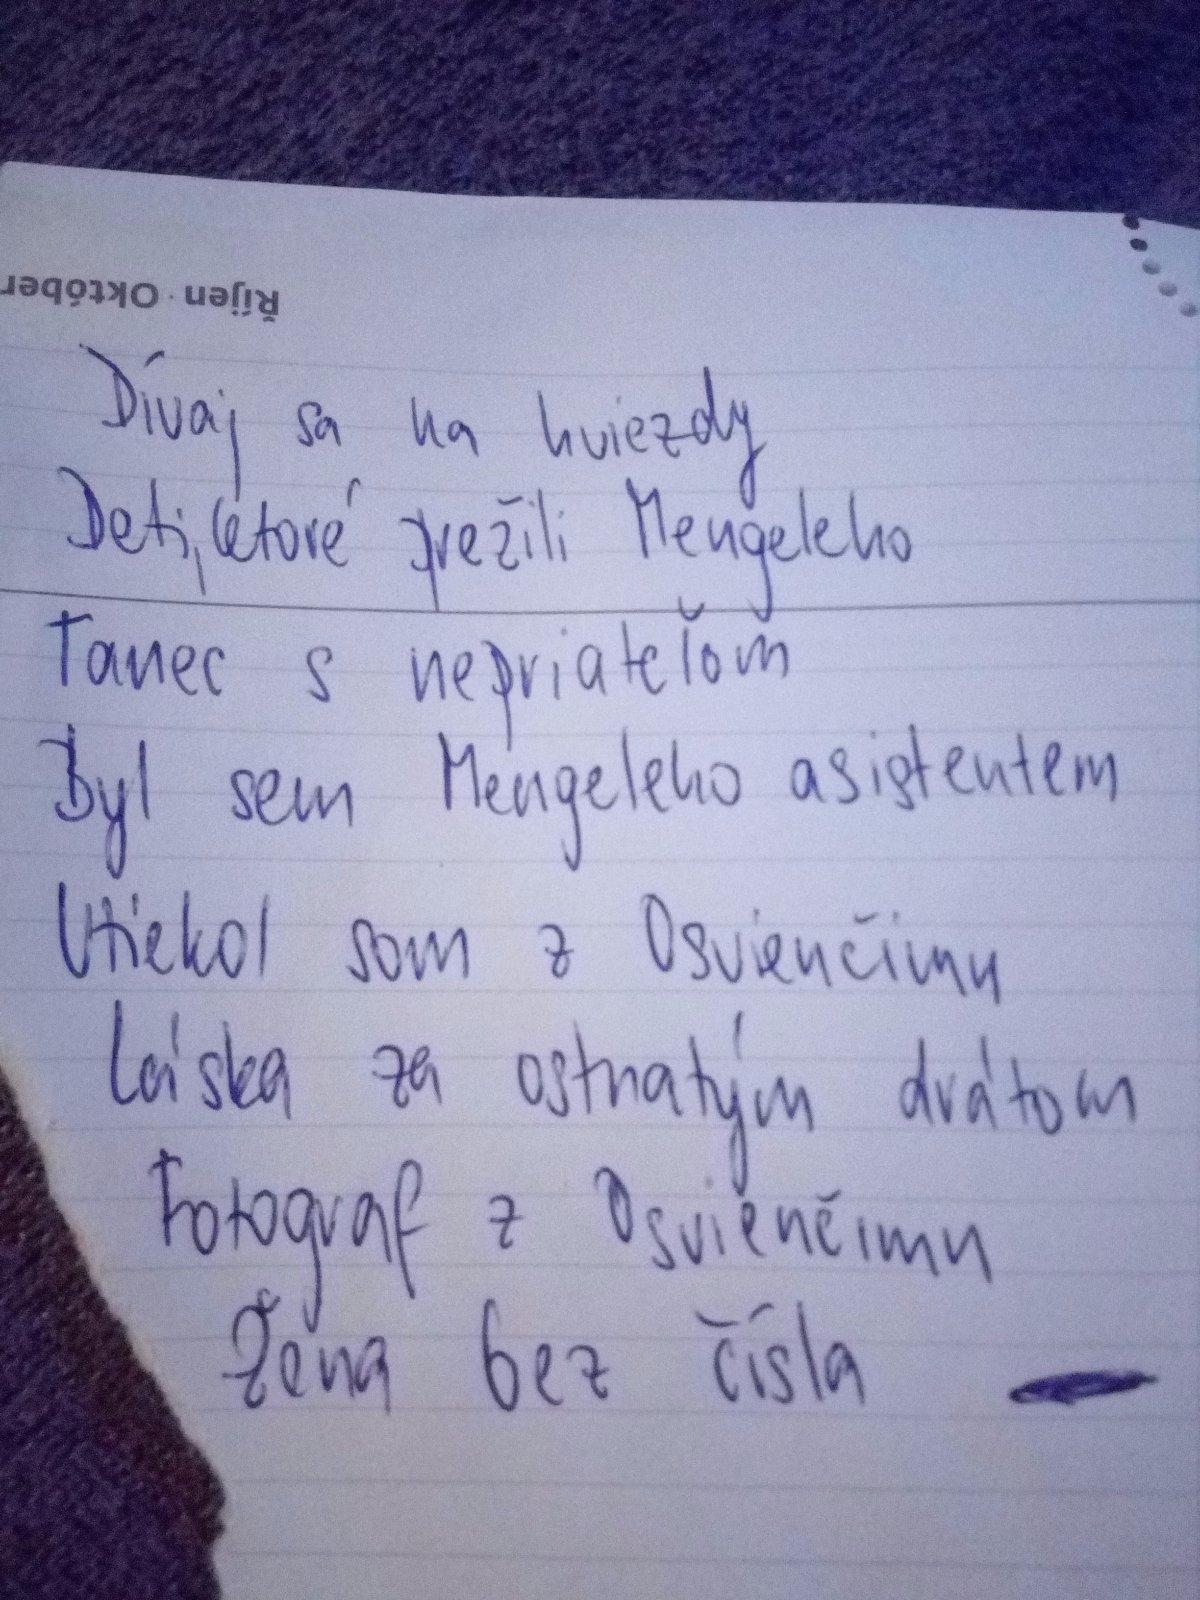 Říjen · Október
Dívaj sa na hviezdy
Deti, ktoré prežili Mengeleho
Tanec s nepriateľom
Byl sem Mengeleho asistentem
Utiekol som z Osvienčimu
Láska za ostnatým drátom
Fotograf z Osvienčimu
Žena bez čísla